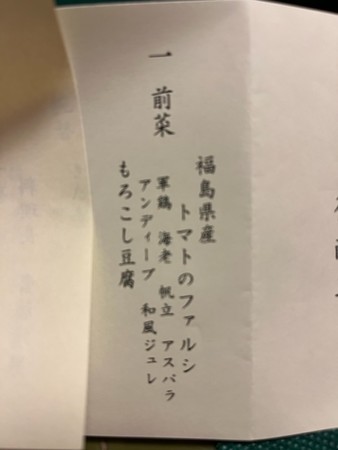 一 前菜
福島県産
トマトのファルシ
軍鶏 海老 帆立 アスパラ
アンディーブ 和風ジュレ
もろこし豆腐